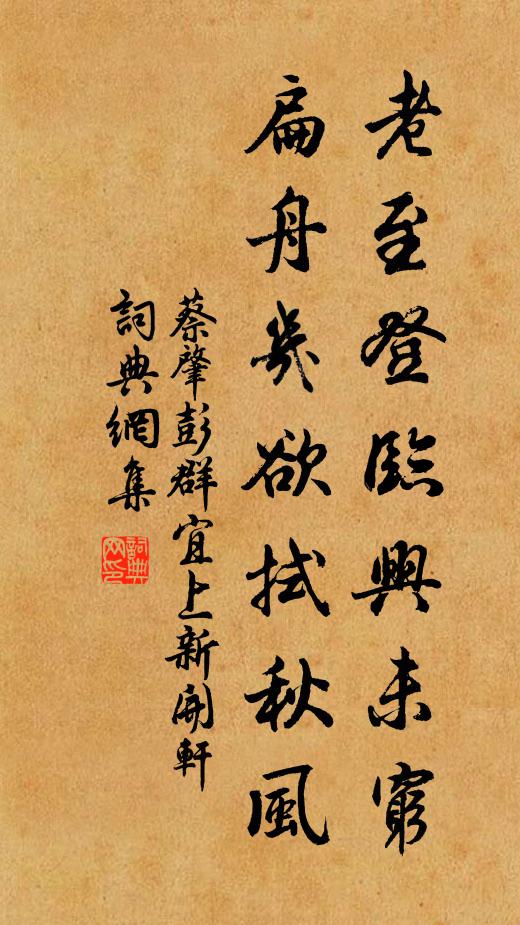 老至登臨興未窮
扁舟幾欲拭秋風
蔡肇彭群宜上新開軒
詞典網集
詞典網印